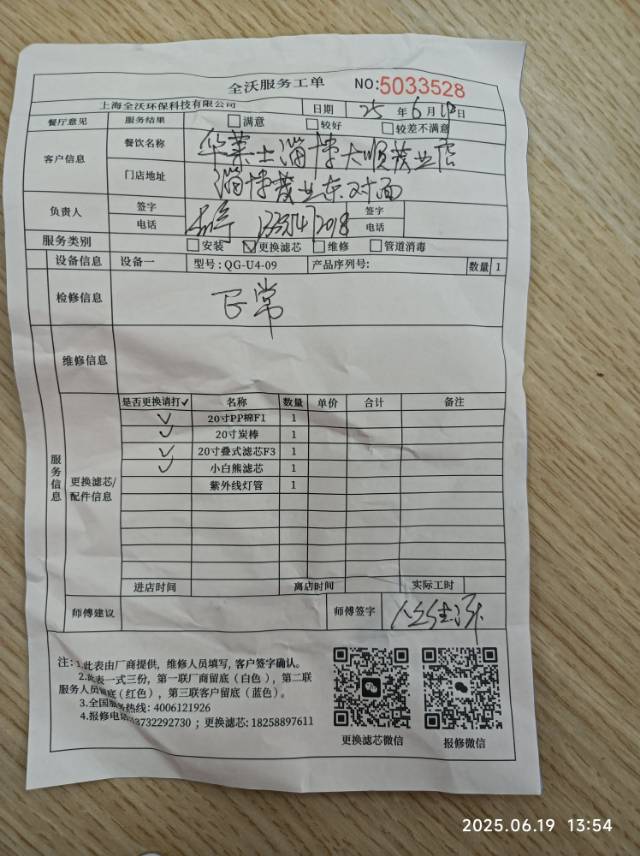 全沃服务工单 NO:5033528
上海全沃环保科技有限公司 日期 25 年 6 月 日
餐厅意见 服务结果 满意 较好 较差不满意
客户信息 餐饮名称 华莱士淄博大顺茂业店
门店地址 淄博茂业东对面
负责人 签字 签字
电话 电话
服务类别 安装 更换滤芯 维修 管道消毒
设备信息 设备一 型号:QG-U4-09 产品序列号: 数量 1
检修信息 正常
维修信息
服务信息
更换滤芯/配件信息
是否更换请打✓ 名称 数量 单价 合计 备注
✓ 20寸PP棉F1 1
✓ 20寸炭棒 1
✓ 20寸叠式滤芯F3 1
✓ 小白熊滤芯 1
紫外线灯管 1
进店时间 离店时间 实际工时
师傅建议 师傅签字
注:1.此表由厂商提供，维修人员填写, 客户签字确认。
2.此表一式三份，第一联厂商留底（白色），第二联
服务人员留底（红色），第三联客户留底（蓝色）。
3.全国服务热线: 4006121926
4.报修电话 3732292730 ; 更换滤芯: 18258897611
更换滤芯微信 报修微信
2025.06.19 13:54